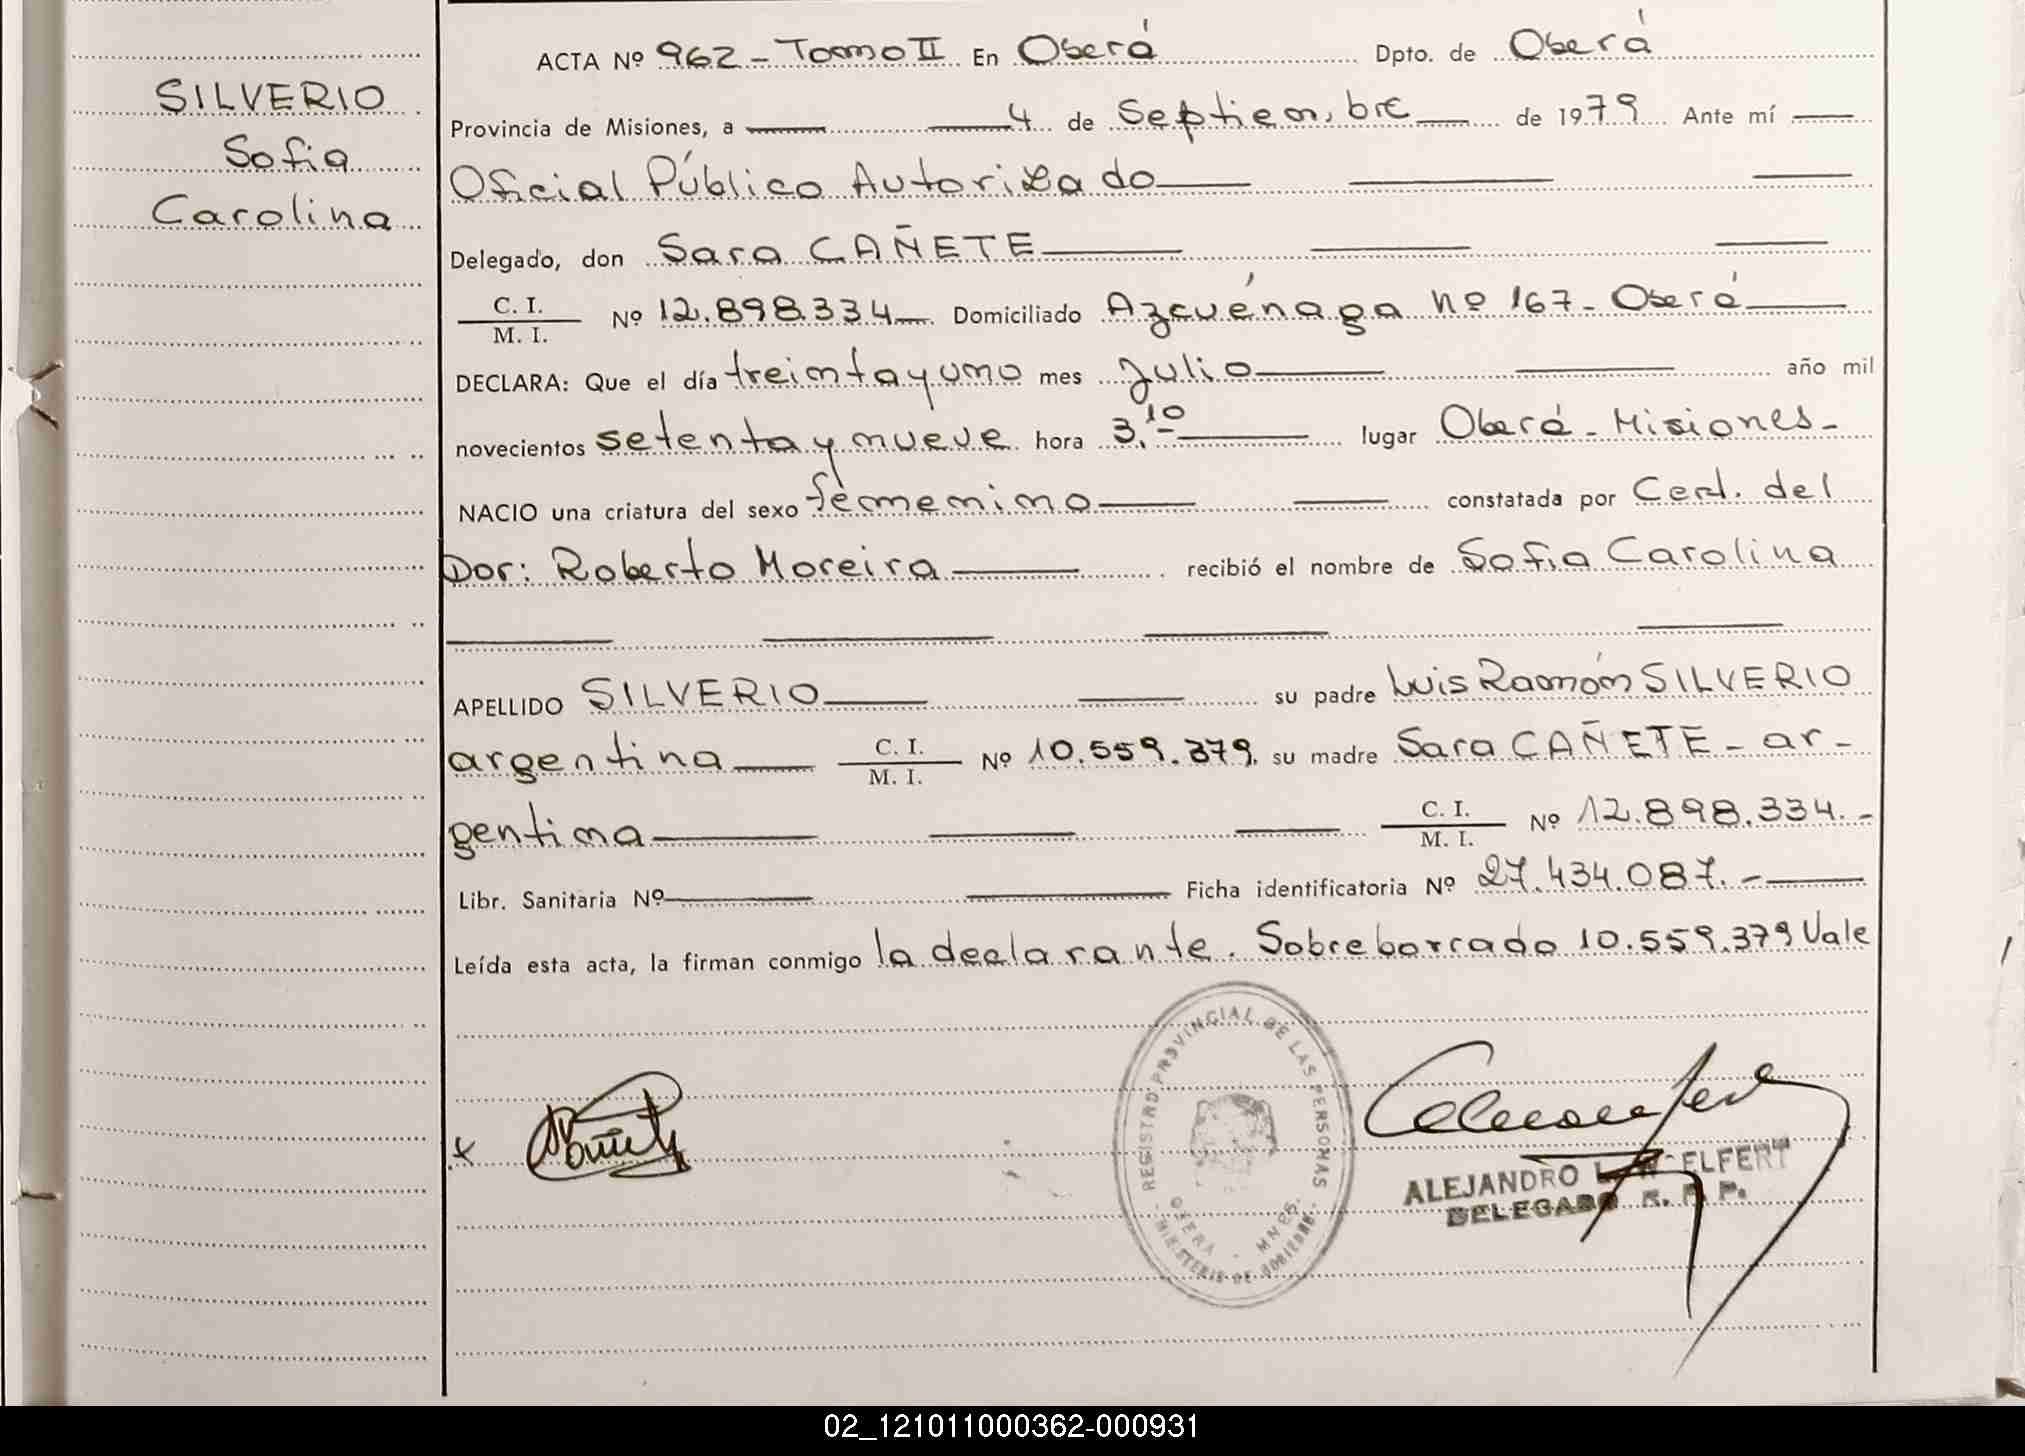 SILVERIO
Sofia
Carolina
ACTA Nº 962 - Tomo II En Oberá Dpto. de Oberá
Provincia de Misiones, a 4 de Septiembre de 1979 Ante mí
Oficial Público Autorizado
Delegado, don Sara CAÑETE
C. I.
M. I.
Nº 12.898.334 Domiciliado Azcuénaga Nº 167 - Oberá
DECLARA: Que el día treinta y uno mes Julio año mil
novecientos setenta y nueve hora 3.10 lugar Oberá - Misiones -
NACIO una criatura del sexo femenino constatada por Cert. del
Dor: Roberto Moreira recibió el nombre de Sofia Carolina
APELLIDO SILVERIO su padre Luis Ramón SILVERIO
argentina C. I. M. I. Nº 10.559.379. su madre Sara CAÑETE - ar-
gentina C. I. M. I. Nº 12.898.334. -
Libr. Sanitaria Nº Ficha identificatoria Nº 27.434.087. -
Leída esta acta, la firman conmigo la declarante. Sobreborrado 10.559.379 Vale
REGISTRO PROVINCIAL DE LAS PERSONAS
OBERA - MNES.
MINISTERIO DE GOBIERNO
ALEJANDRO L.
DELEGADO R. P. P.
02_121011000362-000931